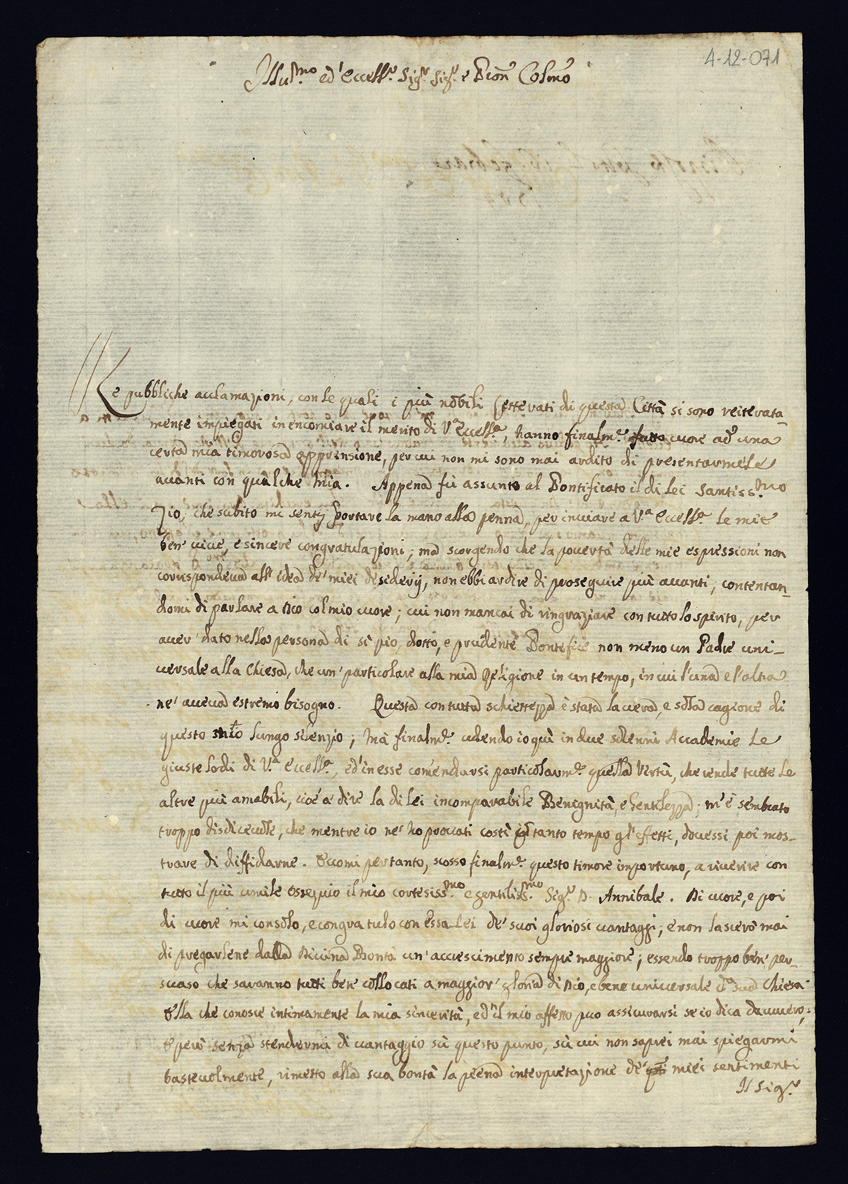 4-12-071
Illu.mo ed' Eccell.o Sig.r Sig.r e Pron Colmo
Le pubbliche acclamazioni, con le quali i più nobili Letterati di questa Città si sono reiterata-
mente impiegati in encomiare il merito di V.a Eccell.a, hanno finalm.e fatto cuore ad' una
certa mia timorosa apprensione, per cui non mi sono mai ardito di presentarmele
avanti con qualche mia. Appena fù assunto al Pontificato il di Lei Santiss.mo
Zio, che subito mi sentij portare la mano alla penna, per inviare a V.a Eccell.a le mie
ben' vive, e sincere congratulazioni; ma scorgendo che la povertà delle mie espressioni non
corrispondeva all' idea de' miei desiderij, non ebbi ardire di proseguire più avanti, contentan-
domi di parlare a Dio col mio cuore; cui non mancai di ringraziare con tutto lo spirito, per
aver' dato nella persona di sì pio, dotto, e prudente Pontefice non meno un Padre uni-
versale alla Chiesa, che un' particolare alla mia Religione in un tempo, in cui l'una e l'altra
ne' aveva estremo bisogno. Questa con tutta schiettezza è stata la vera, e sola cagione di
questo mio lungo silenzio; Mà finalm.e udendo io quì in due solenni Accademie le
giuste lodi di V.a Eccell.a, ed' in esse comendarsi particolarm.e quella Vertù, che rende tutte le
altre più amabili, cioè a dire la di lei incomparabile Benignità, e Gentilezza; m'è sembrato
troppo disdicevole, che mentre io ne' ho provati costì tanto tempo gl'effetti, dovessi poi mos-
trare di diffidarne. Eccomi per tanto, scosso finalm.e questo timore importuno, a riverire con
tutto il più umile ossequio il mio cortesiss.mo e gentiliss.mo Sig.r D. Annibale. Di cuore, e poi
di cuore mi consolo, e congratulo con Essa Lei de' suoi gloriosi vantaggi; e non lascerò mai
di pregarlene dalla Divina Bontà un' accrescimento sempre maggiore; essendo troppo ben' per-
suaso che saranno tutti ben' collocati a maggior' gloria di Dio, e bene universale d. sua Chiesa.
Ella che conosce intimamente la mia sincerità, ed' il mio affetto può assicurarsi se io dica davvero;
e però senza stendermi di vantaggio sù questo punto, sù cui non saprei mai spiegarmi
bastevolmente, rimetto alla sua bontà la piena interpretazione de' miei sentimenti
Il Sig.r